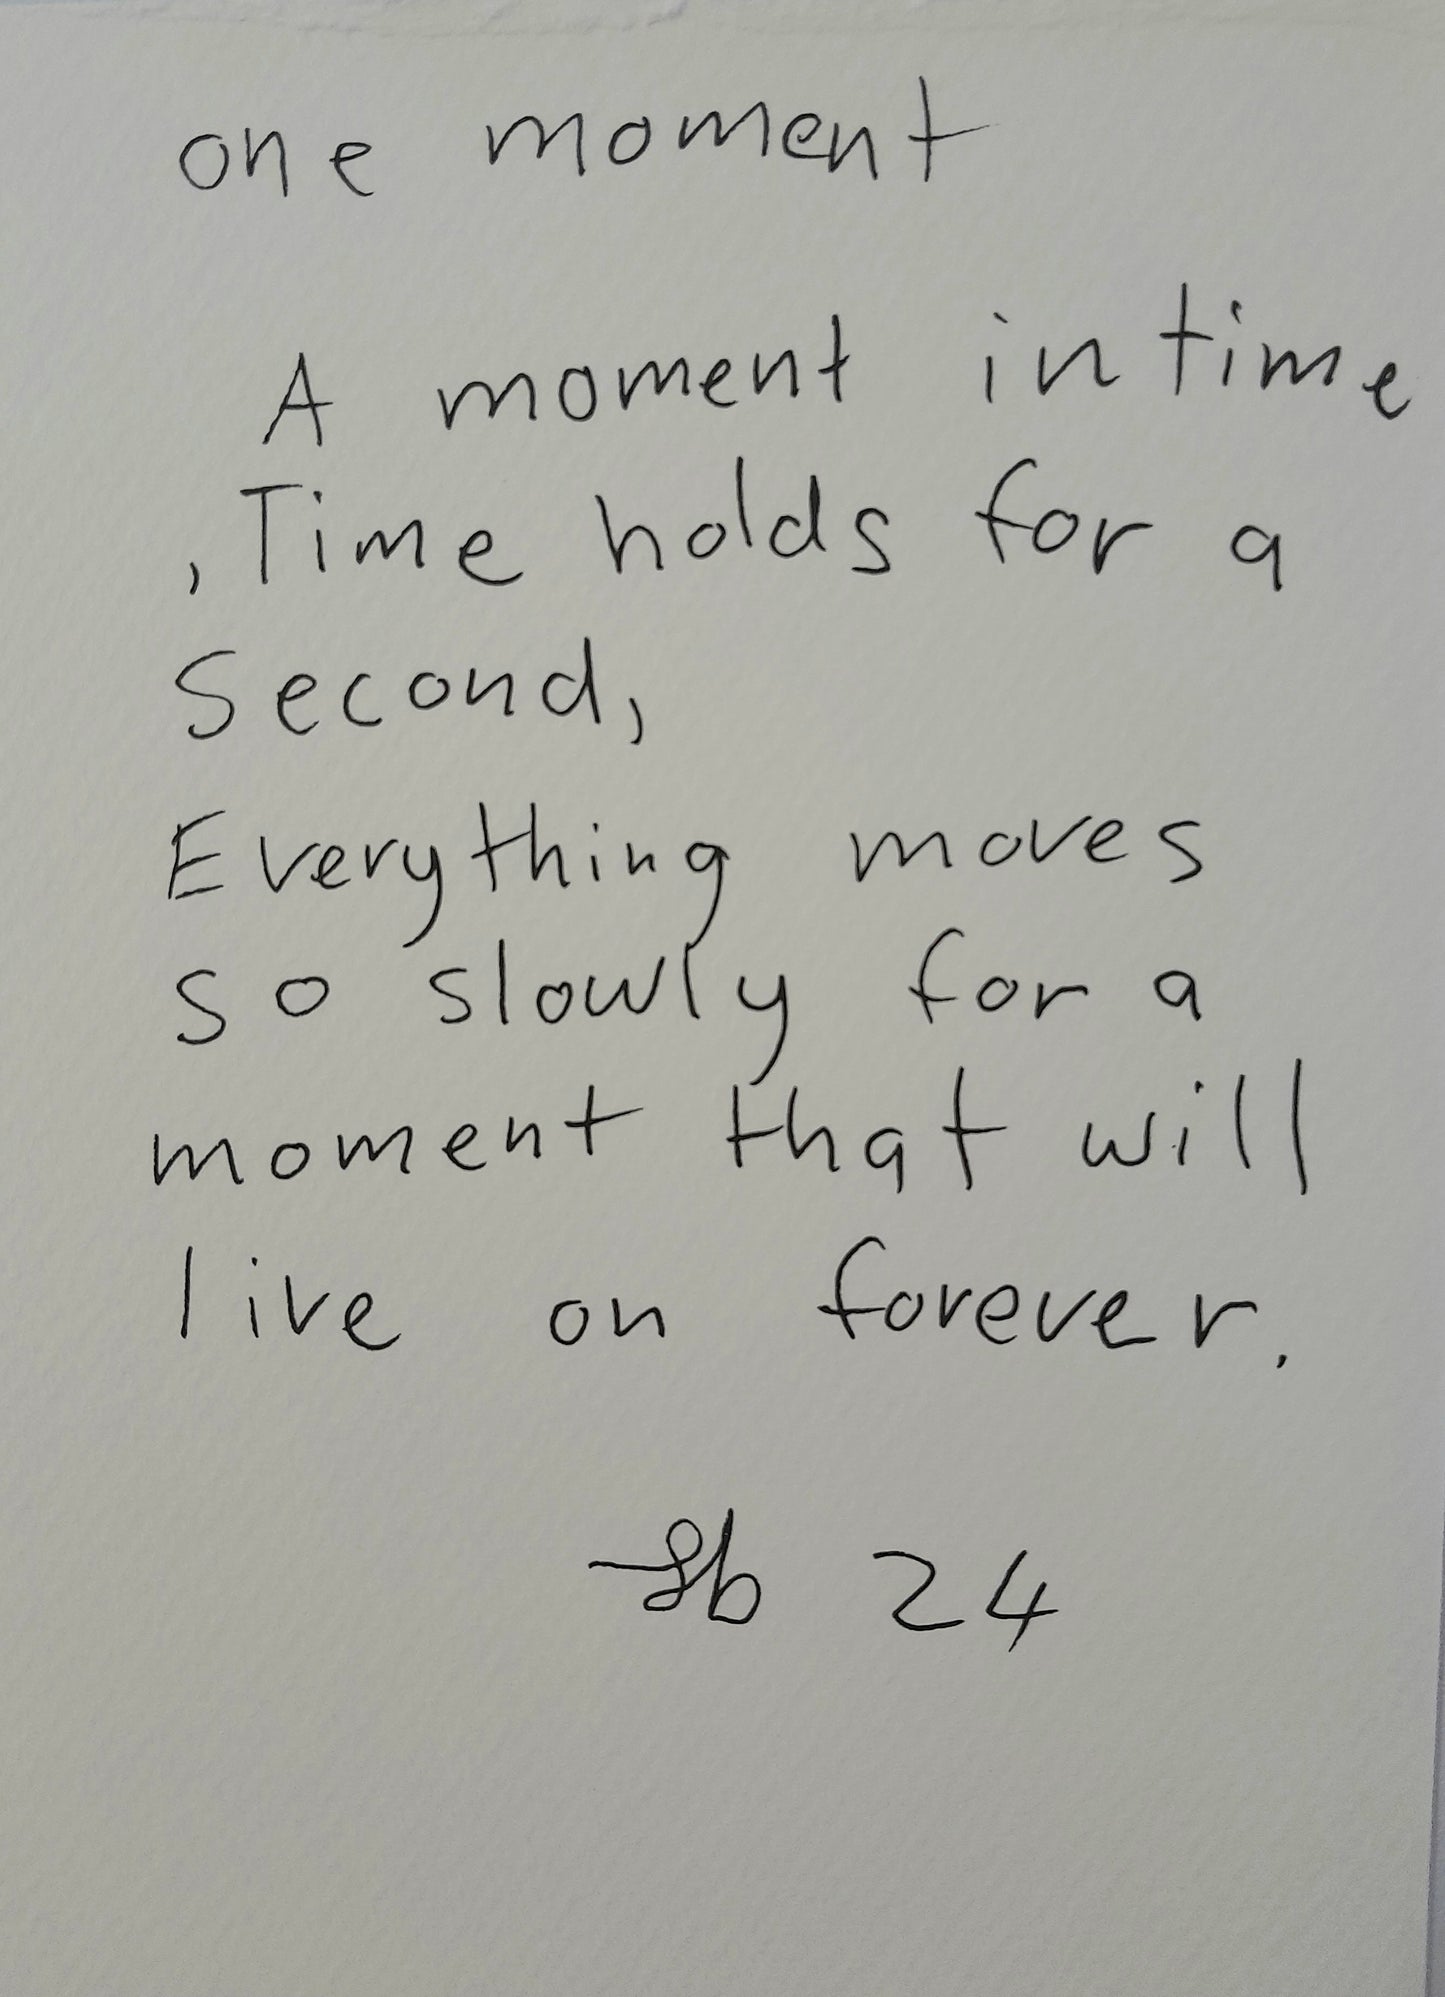 one moment
A moment in time
, Time holds for a
Second,
Everything moves
so slowly for a
moment that will
live on forever.
sb 24